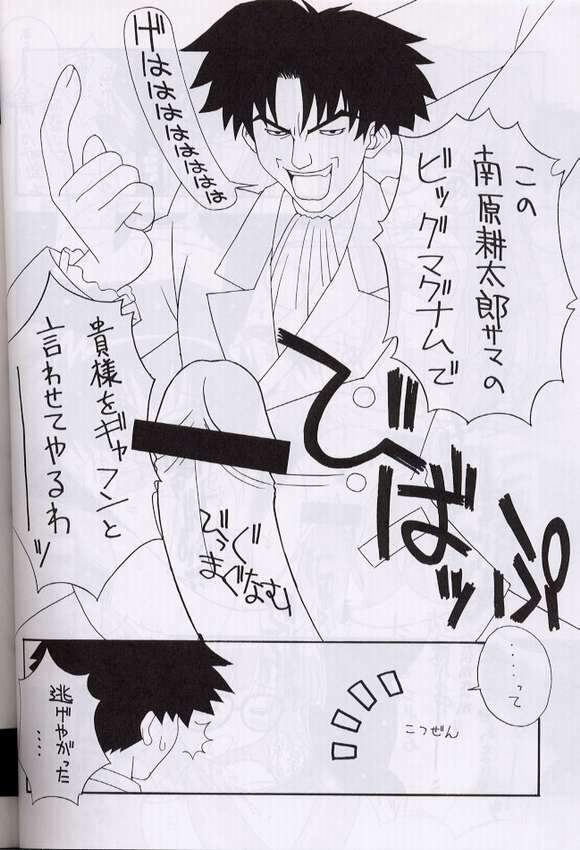 この
南原耕太郎サマの
ビッグマグナムで
げはははははははは
貴様をギャフンと
言わせてやるわッ
びばッ
びっぐ
まぐなむ
……って
こつぜん
逃げやがった
……